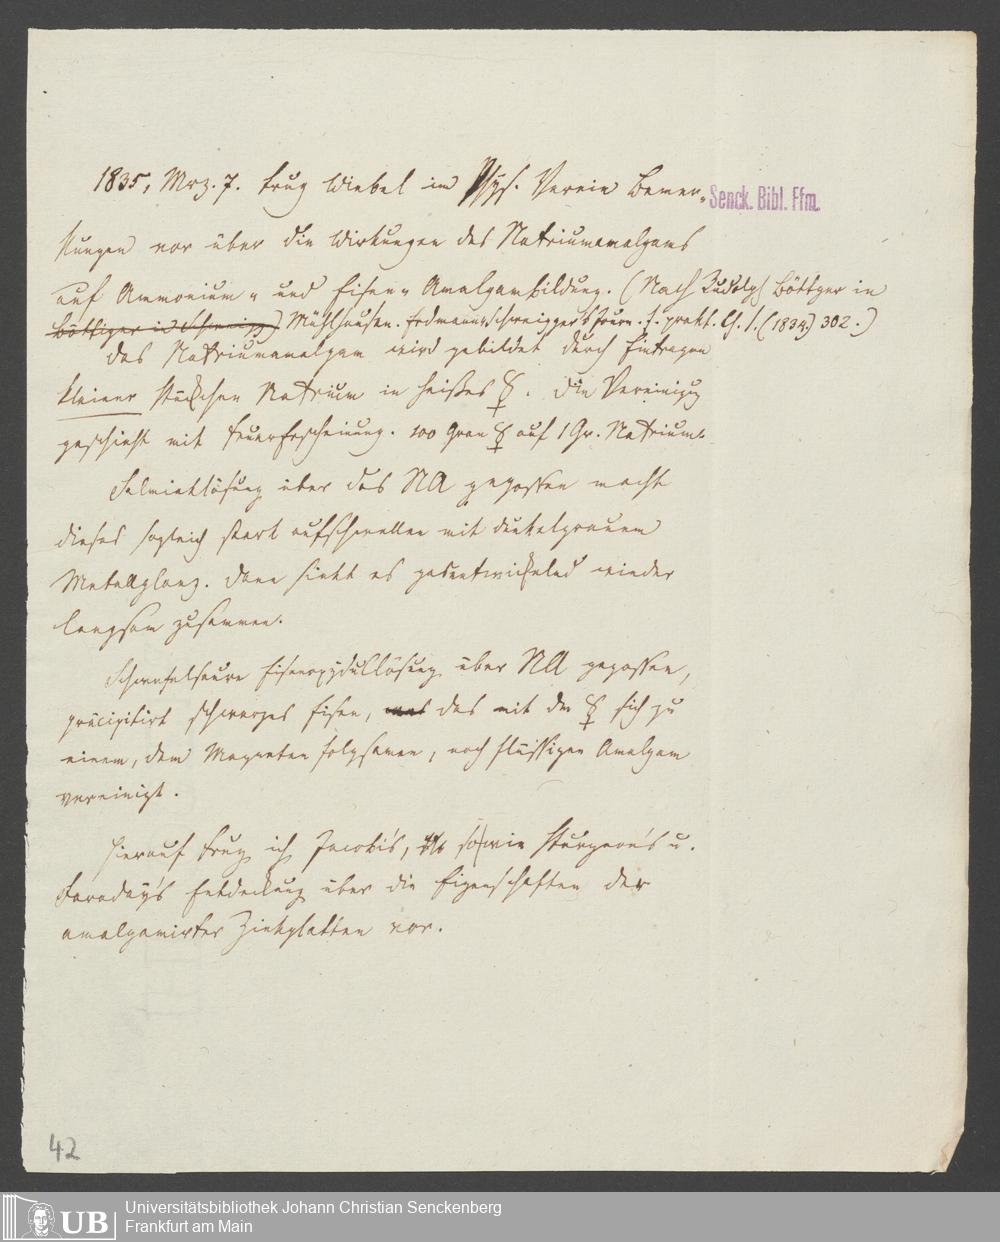 1835, Mrz. 7. trug Wiebel im Phys. Verein Bemer-
Senck. Bibl. Ffm.
kungen vor über die Wirkungen des Natriumamalgams
auf Ammonium- und Eisen-Amalgambildung. (Nach Rudolph Böttger in
Böttiger in Schweigg.) Mühlhausen. Erdmann-Schweigger's Journ. f. prakt. Ch. I. (1834) 302.)
Das Natriumamalgam wird gebildet durch Eintragen
kleiner Stückchen Natrium in heißes ☿. Die Vereinigg
geschieht mit Feuererscheinung. 100 Gran ☿ auf 1 Gr. Natrium.
Salmiaklösung über das NA gegossen macht
dieses sogleich stark aufschwellen mit dunkelgrauem
Metallglanz. Dann sinkt es gasentwickelnd wieder
langsam zusammen.
Schwefelsaure Eisenoxydullösung über NA gegossen,
präcipitirt schwarzes Eisen, das mit dem ☿ sich zu
einem, dem Magneten folgsamen, noch flüssigen Amalgam
vereinigt.
Hierauf trug ich Jacobi's, sowie Sturgeon's u.
Faraday's Entdeckung über die Eigenschaften der
amalgamirter Zinkplatten vor.
42
UB
Universitätsbibliothek Johann Christian Senckenberg
Frankfurt am Main